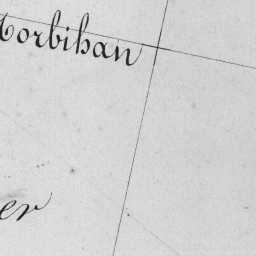 Morbihan
er